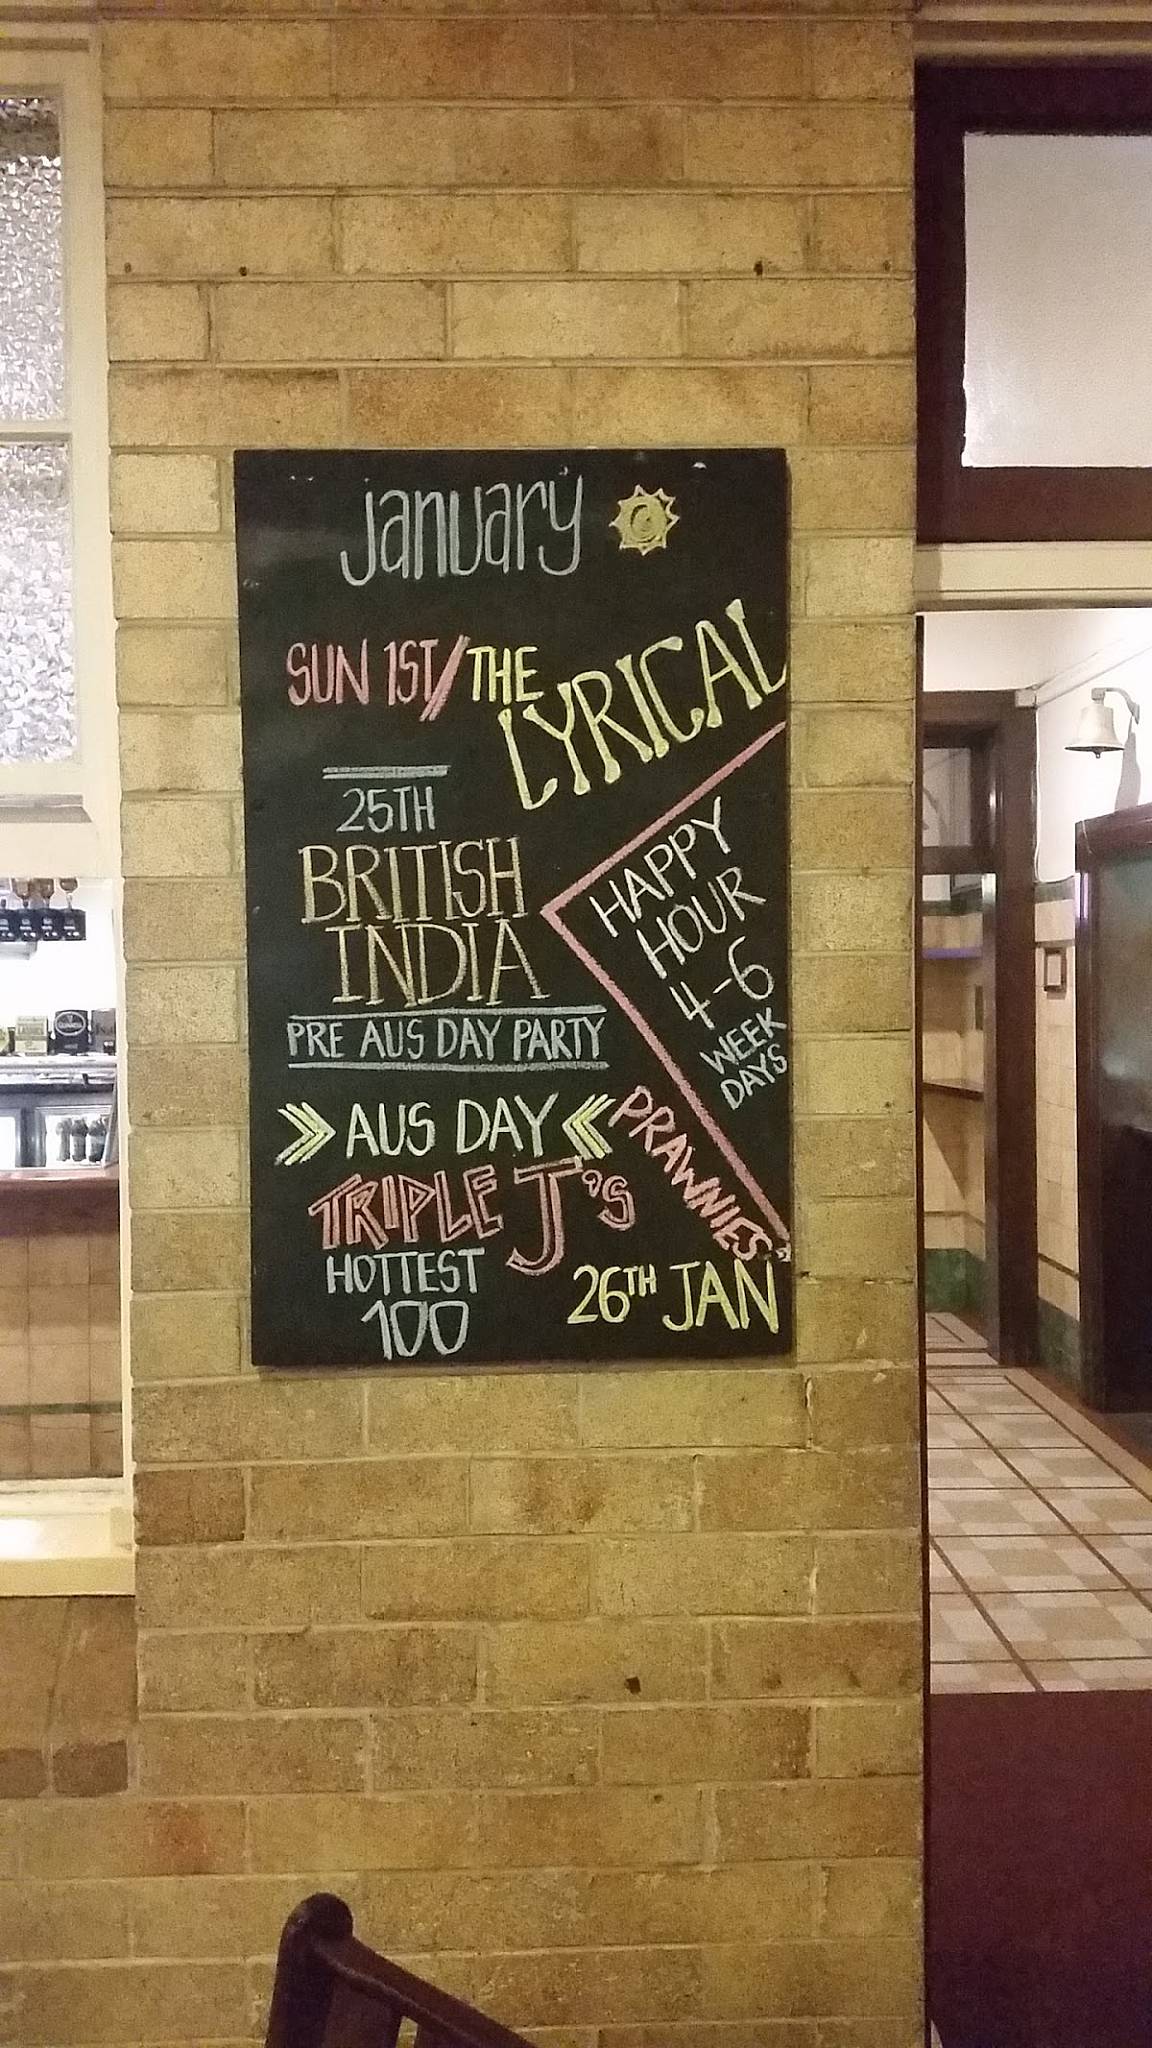 January
SUN 1ST/THE
LYRICAL
25TH
BRITISH
INDIA
PRE AUS DAY PARTY
HAPPY
HOUR
4-6
WEEK
DAYS
>> AUS DAY <<
TRIPLE J's
HOTTEST
100
PRAWNIES
26TH JAN
GUINNESS